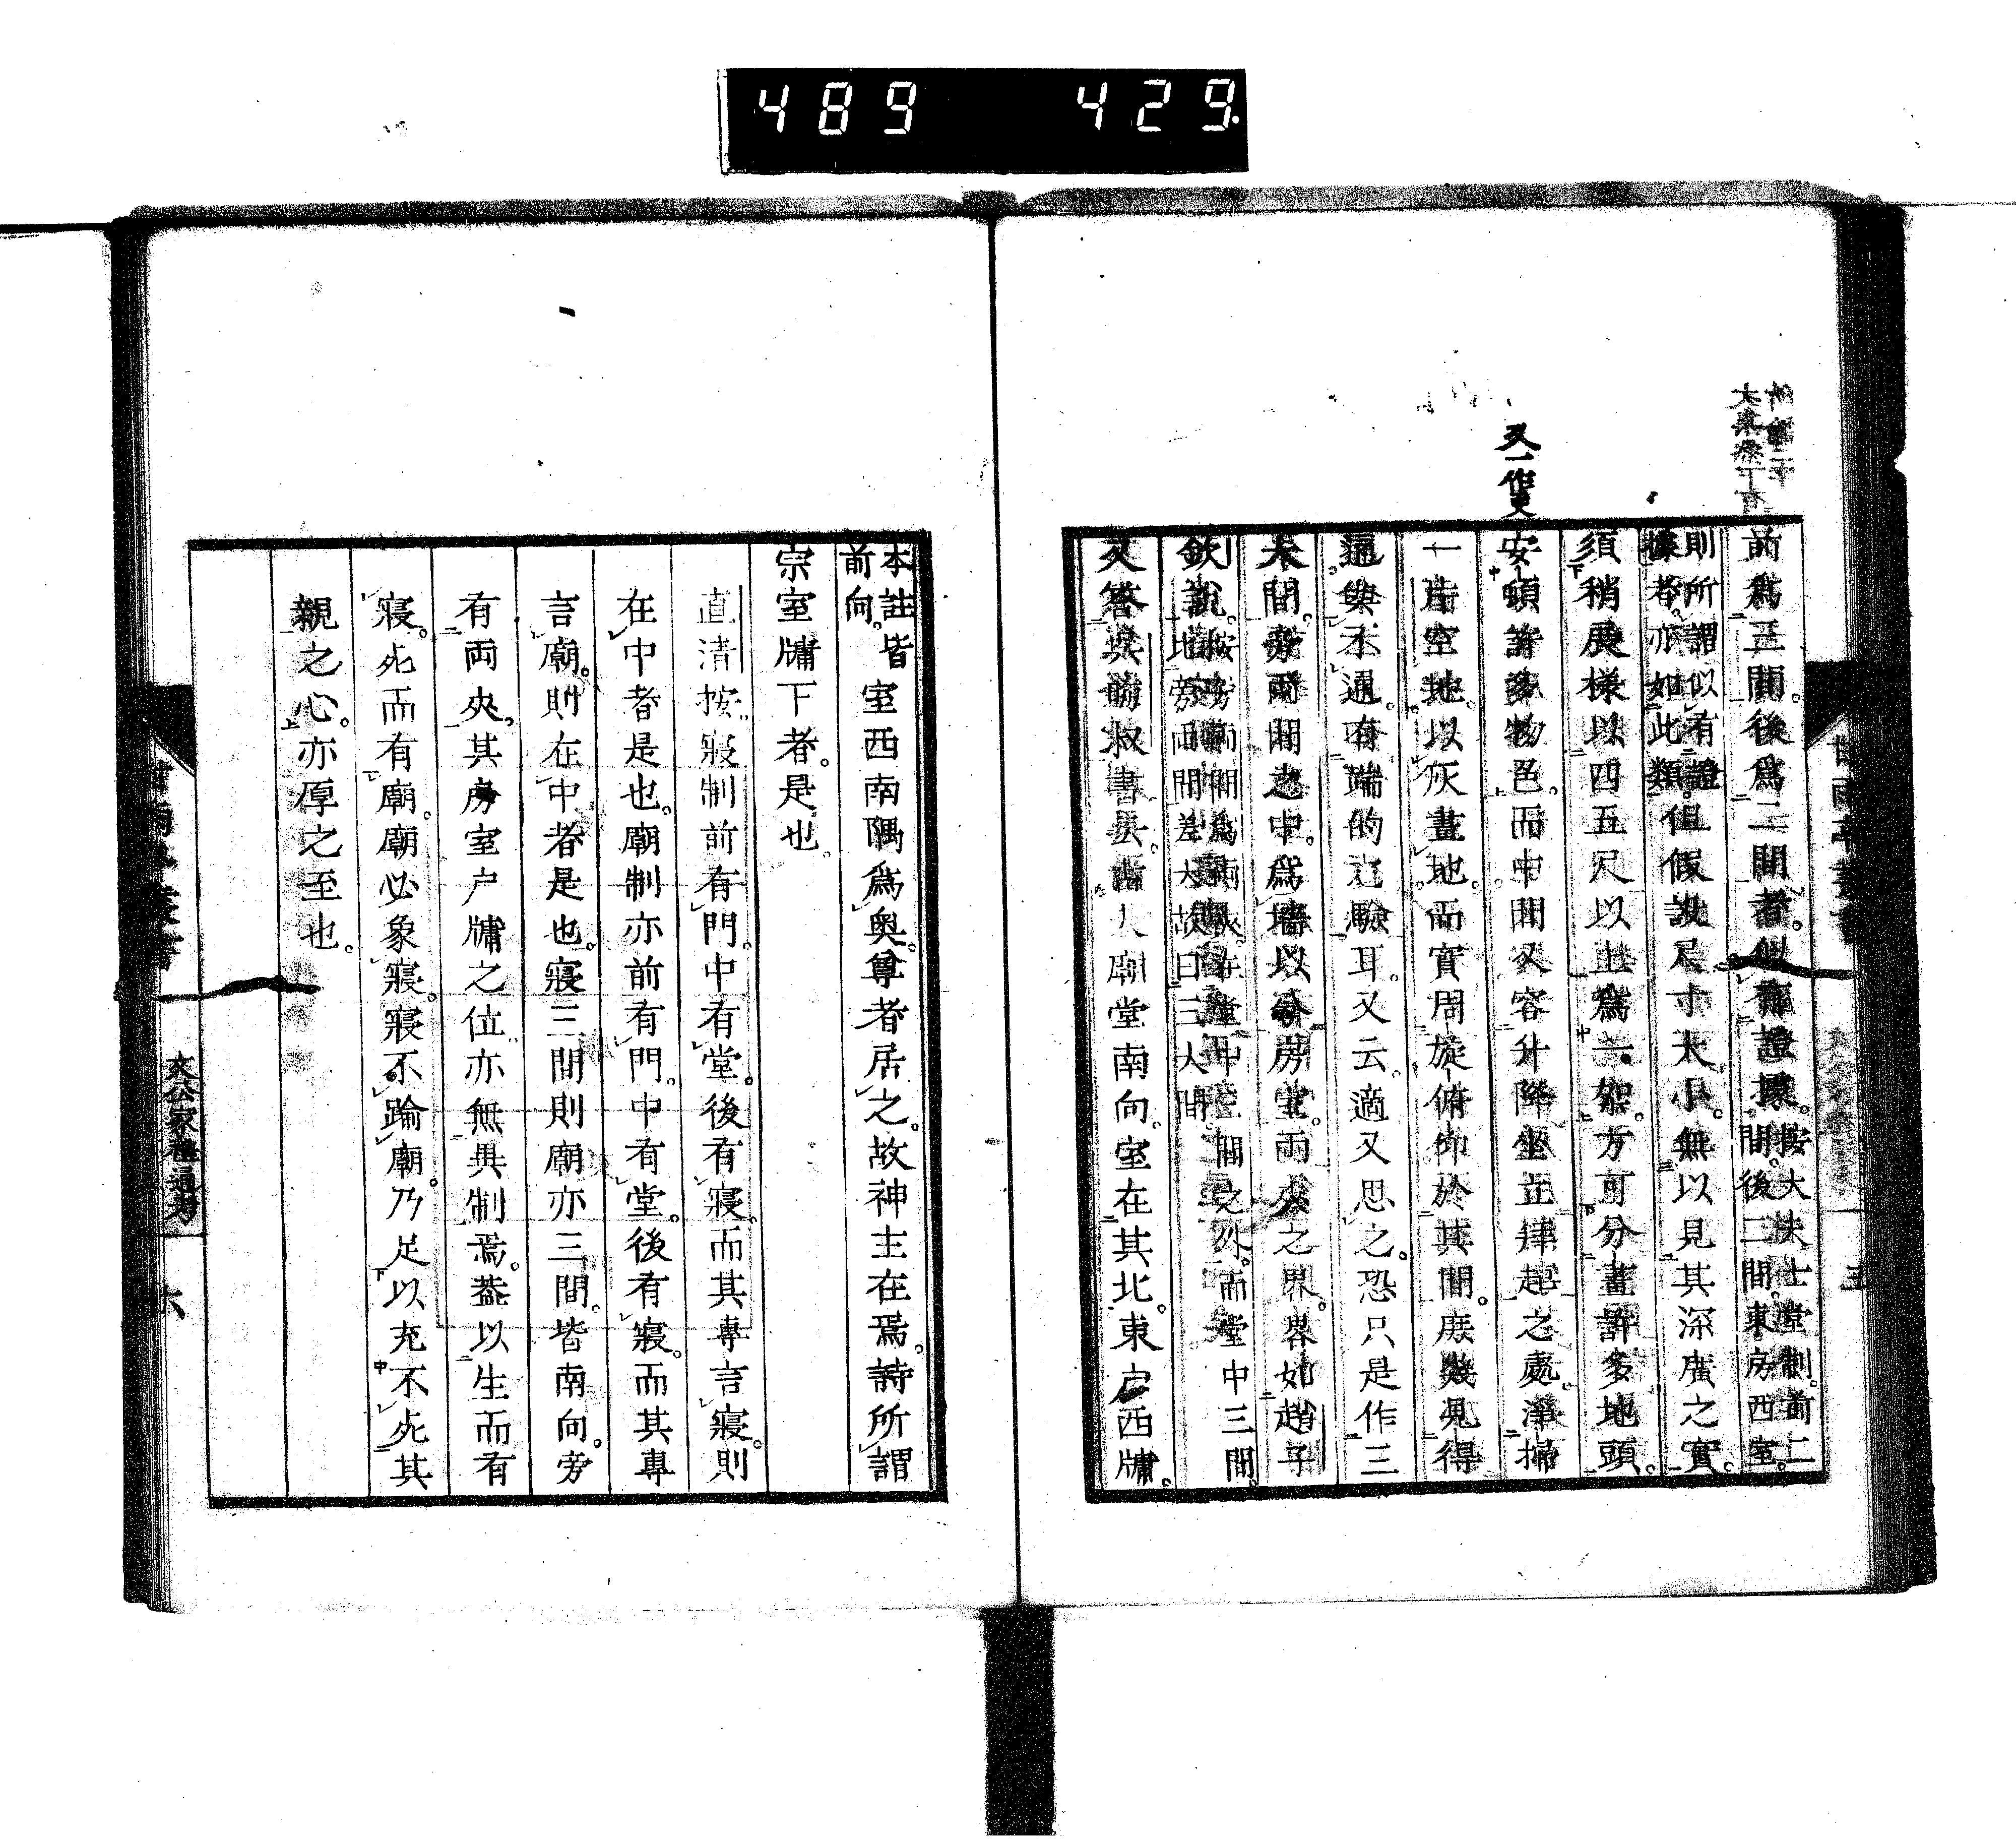 489 429
前爲三間。後爲二間者。似有證據。按大夫士堂制。前二
間。後二間。東房西室。
則所謂似有證
據者。亦如此類。但假設尺寸大小。無以見其深廣之實。
須稍展樣以四五尺以上爲一架。方可分畫許多地頭。
安頓許多物色。而中間又容升降坐立拜起之處。淨掃
一片空地。以灰畫地。而實周旋俯仰於其間。庶幾見得
通與不通。有端的之驗耳。又云。適又思之。恐只是作三
大間。旁兩間之中。爲墻以分房室。兩夾之界。畧如趙子
欽說。按旁兩間爲兩夾。在堂中三間之外。而堂中三間。
地。旁兩間差大。故曰三大間
又答吳 叔書曰。 人廟堂南向。室在其北。東戶西牖。
又一作更
本註皆
前向。
室西南隅爲奧。尊者居之。故神主在焉。詩所謂
宗室牖下者。是也。
直清按。寢制前有門。中有堂。後有寢。而其專言寢。則
在中者是也。廟制亦前有門。中有堂。後有寢。而其專
言廟。則在中者是也。寢三間則廟亦三間。皆南向。旁
有兩夾。其房室戶牖之位。亦無異制焉。蓋以生而有
寢。死而有廟。廟必象寢。寢不踰廟。乃足以充不死其
親之心。亦厚之至也。
文公家禮通考
六